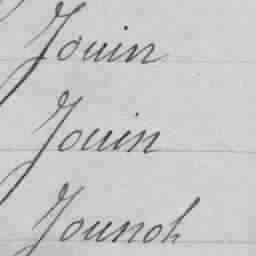 Jouin
Jouin
Jounoh